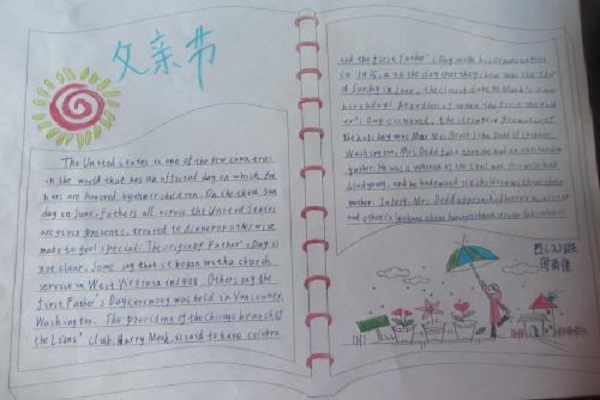 父亲节
The United states is one of the few countries
in the world that has an official day on which fat
hers are honored by their children. On the third Sun
day in June, fathers all across the United States
are given presents, treated to dinner or otherwise
made to feel special. The origin of Father's Day is
not clear. Some say that it began with a church
service in West Virginia in 1908. Others say the
first Father's Day ceremony was held in Vancouver,
Washington. The president of the Chicago branch of
the Lions' Club, Harry Meek, is said to have celebra
ted the first Father's Day with his organization
in 1915, and the day
Sunday in June, the closest date to Meek's own
birthday! Regardless of when the first
er's Day occurred, the
of
the holiday was Mrs. Bruce John Dodd of Spokane,
Washington. Mrs. Dodd felt
father. He was a veteran of the Civil War. His wife had
died young, and he had raised six children without their
mother. In 1909, Mrs. Dodd approached her own minister
and others in Spokane about